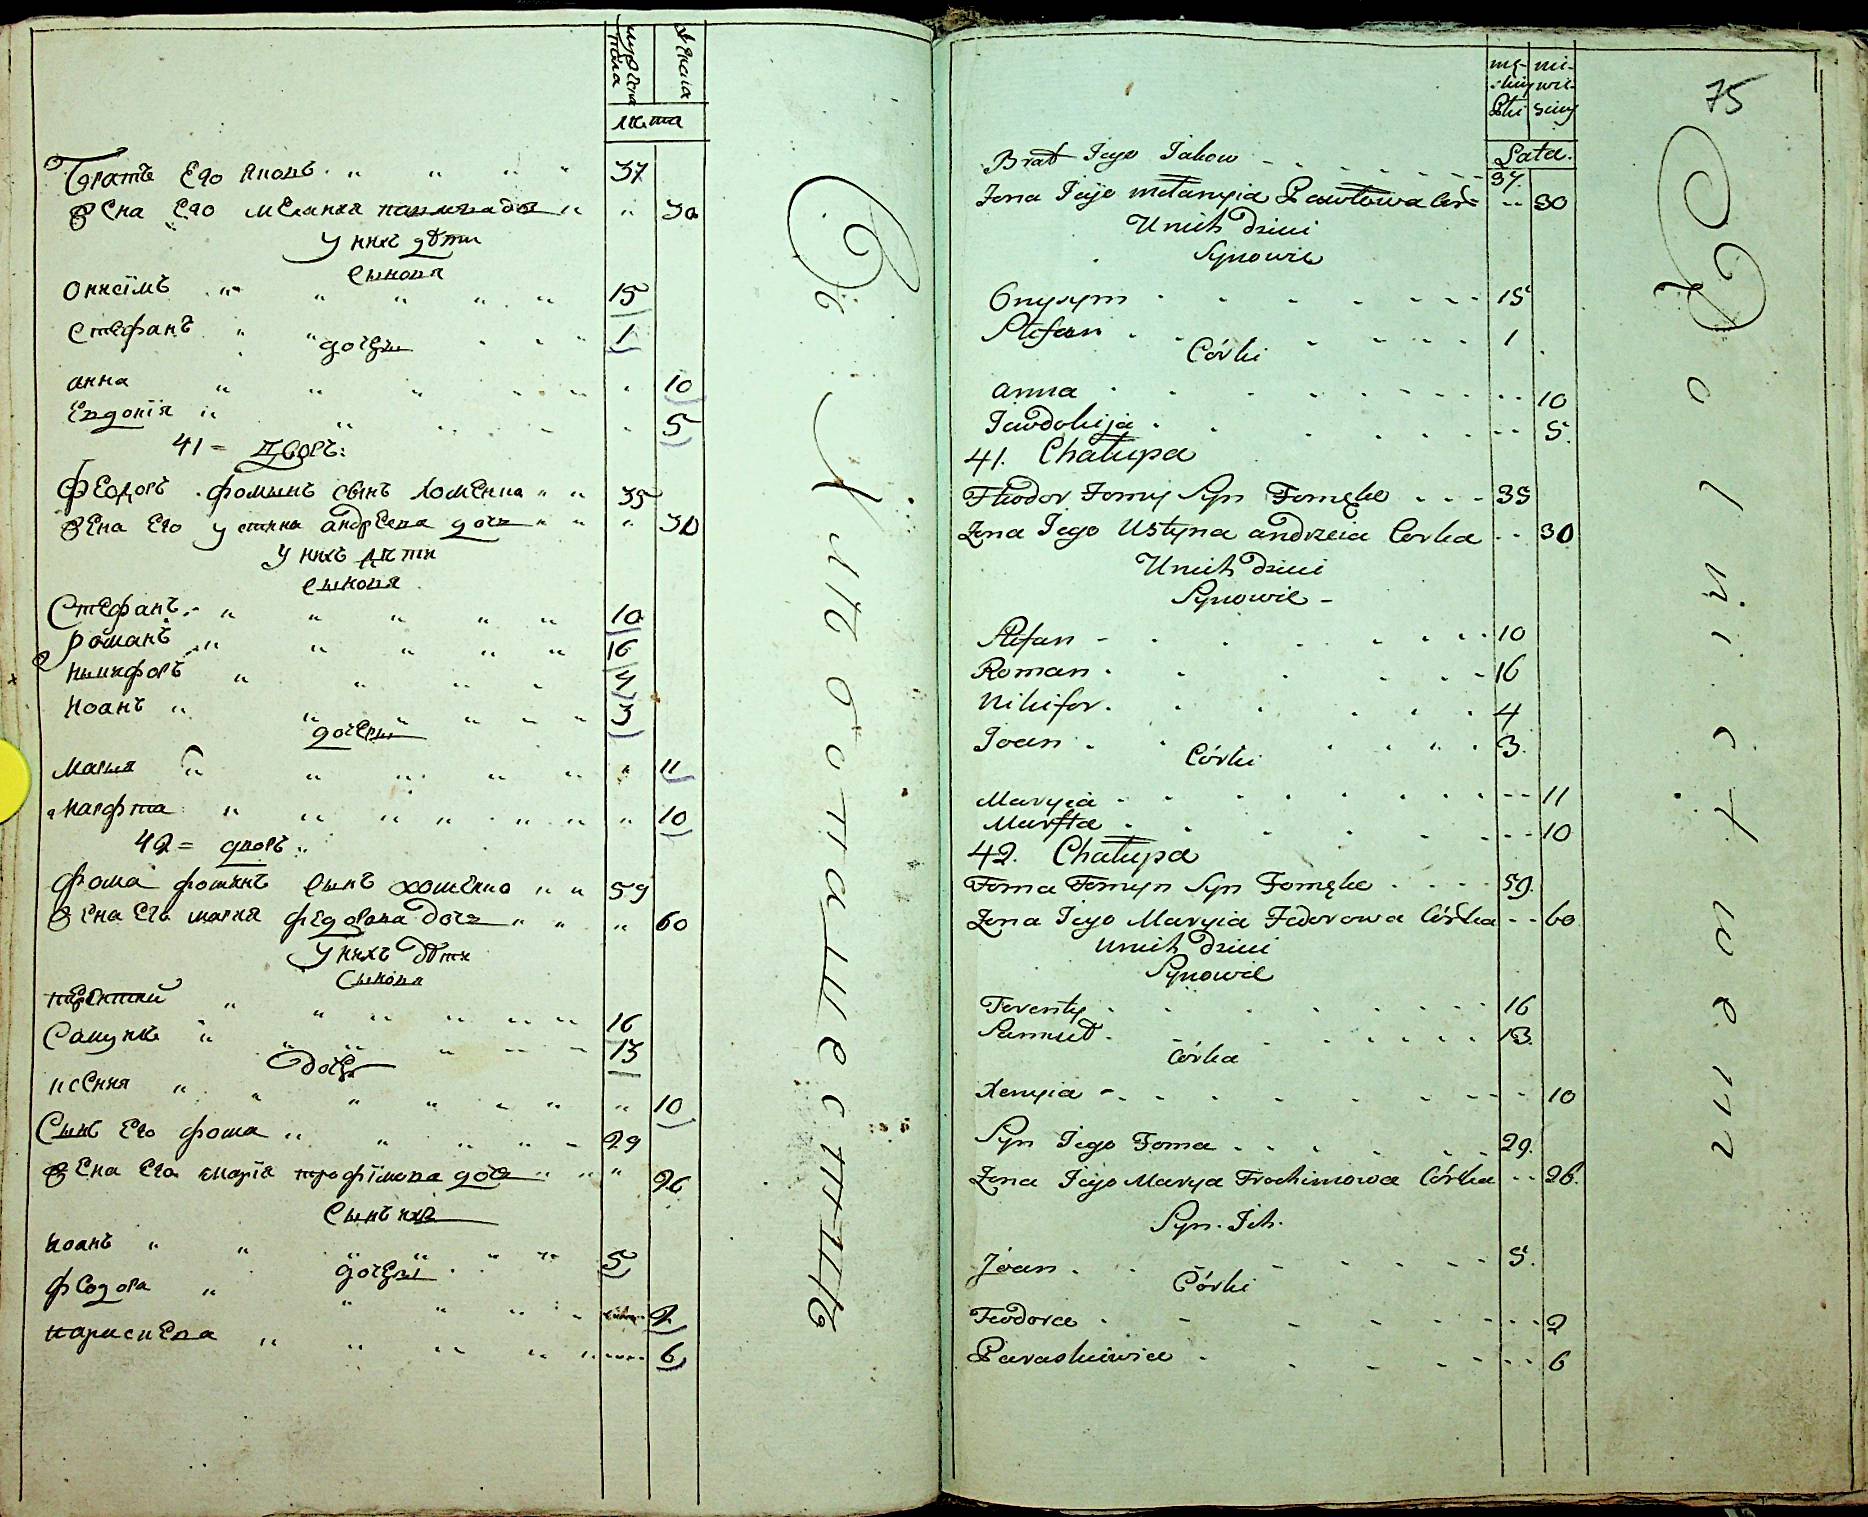 мужеска пола
женска
лѣта
Братъ Его Яковъ 37
Жена Его Меланка Павлова доч 30
У нихъ дѣти
Сыновя
Онисімъ 15
Стефанъ 1
дочеры
анна 10
Евдокія 5
41 = Дворъ:
Феодоръ фоминъ сынъ Хоменко 35
Жена Его устина андреева дочь 30
У нихъ дѣти
сыновя
Стефанъ 10
Романъ 16
Никифоръ 4
Иоанъ 3
дочеры
Марья 11
Марфта 10
42 = дворъ
Фома фоминъ сынъ хоменко 59
Жена Его мария федорова дочь 60
У нихъ дѣти
Сыновя
терентий 16
Самуилъ 13
дочь
ксения 10
Сынъ Его фома 29
Жена Его марія трофімова доч 26
Сынъ ихъ
Иоанъ 5
дочеры
феодора 2
параскева 6
75
Lata.
Brat Jego Jakow 37.
Żona Jego Metanyia Pawłowa Cor 30
U nich dzieci
Synowie
Onysym 15
Stefan 1
Córki
anna 10
Jewdokija 5.
41. Chałupa
Fheodor Fomy Syn Fomęko 35
Żona Jego Ustyna andrzeia Corka 30
U nich dzieci
Synowie
Stefan 10
Roman 16
Nikifor 4
Joan 3.
Córki
Maryia 11
Marfta 10
42. Chałupa
Foma Fomyn Syn Fomęko 59.
Żona Jego Maryia Fedorowa Córka 60
U nich dzieci
Synowie
Terenty 16
Samuel 13.
Córka
Xenyia 10
Syn Jego Foma 29.
Żona Jego Marya Trochimowa Córka 26.
Syn Ich.
Joan 5.
Córki
Feodora 2
Paraskiewia 6